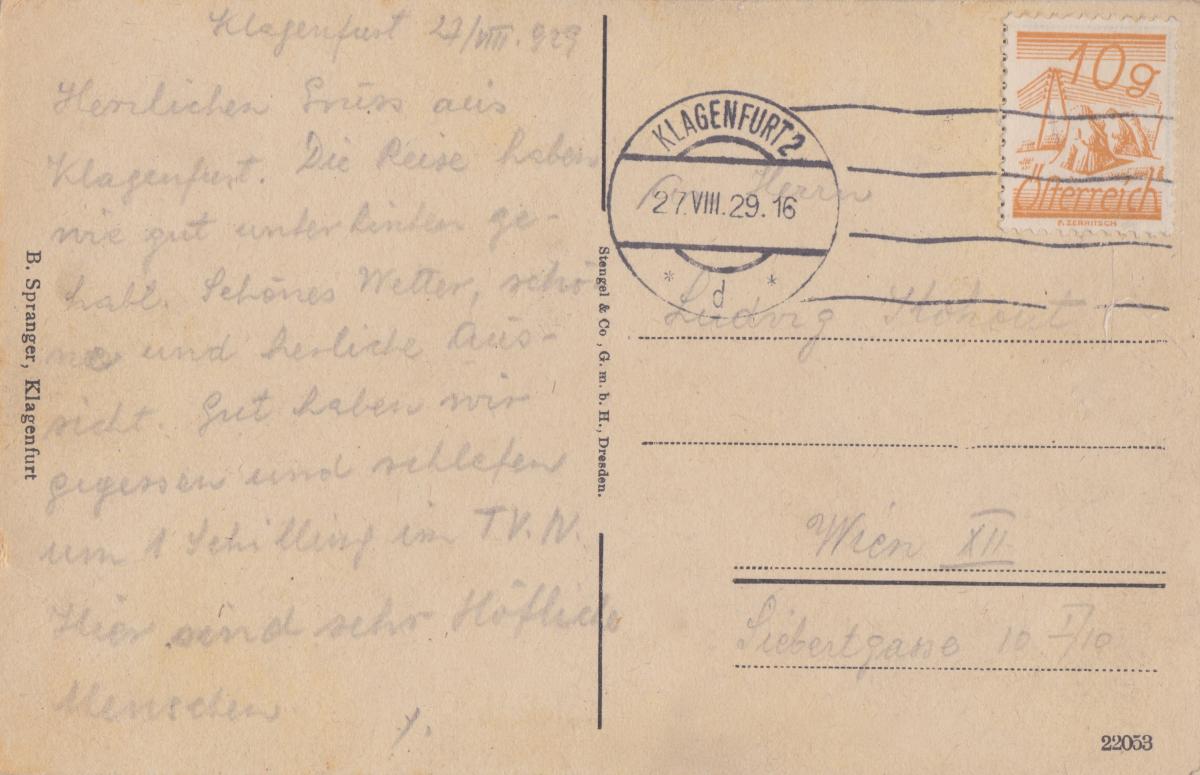 Klagenfurt 27/VIII. 929
Herzlichen Gruss aus
Klagenfurt. Die Reise haben
wir gut unterhenten ge-
habt. Schönes Wetter, schö-
ne und herliche Aus-
sicht. Gut haben wir
gegessen und schlefen
um 1 Schilling im T.V.N.
Hier sind sehr Höfliche
Menschen
B. Spranger, Klagenfurt
Stengel & Co., G. m. b. H., Dresden.
KLAGENFURT 2
27.VIII.29.16
* d *
10g
Österreich
An Herrn
Ludwig
Wien XII
Siebertgasse 10 I/10
22053